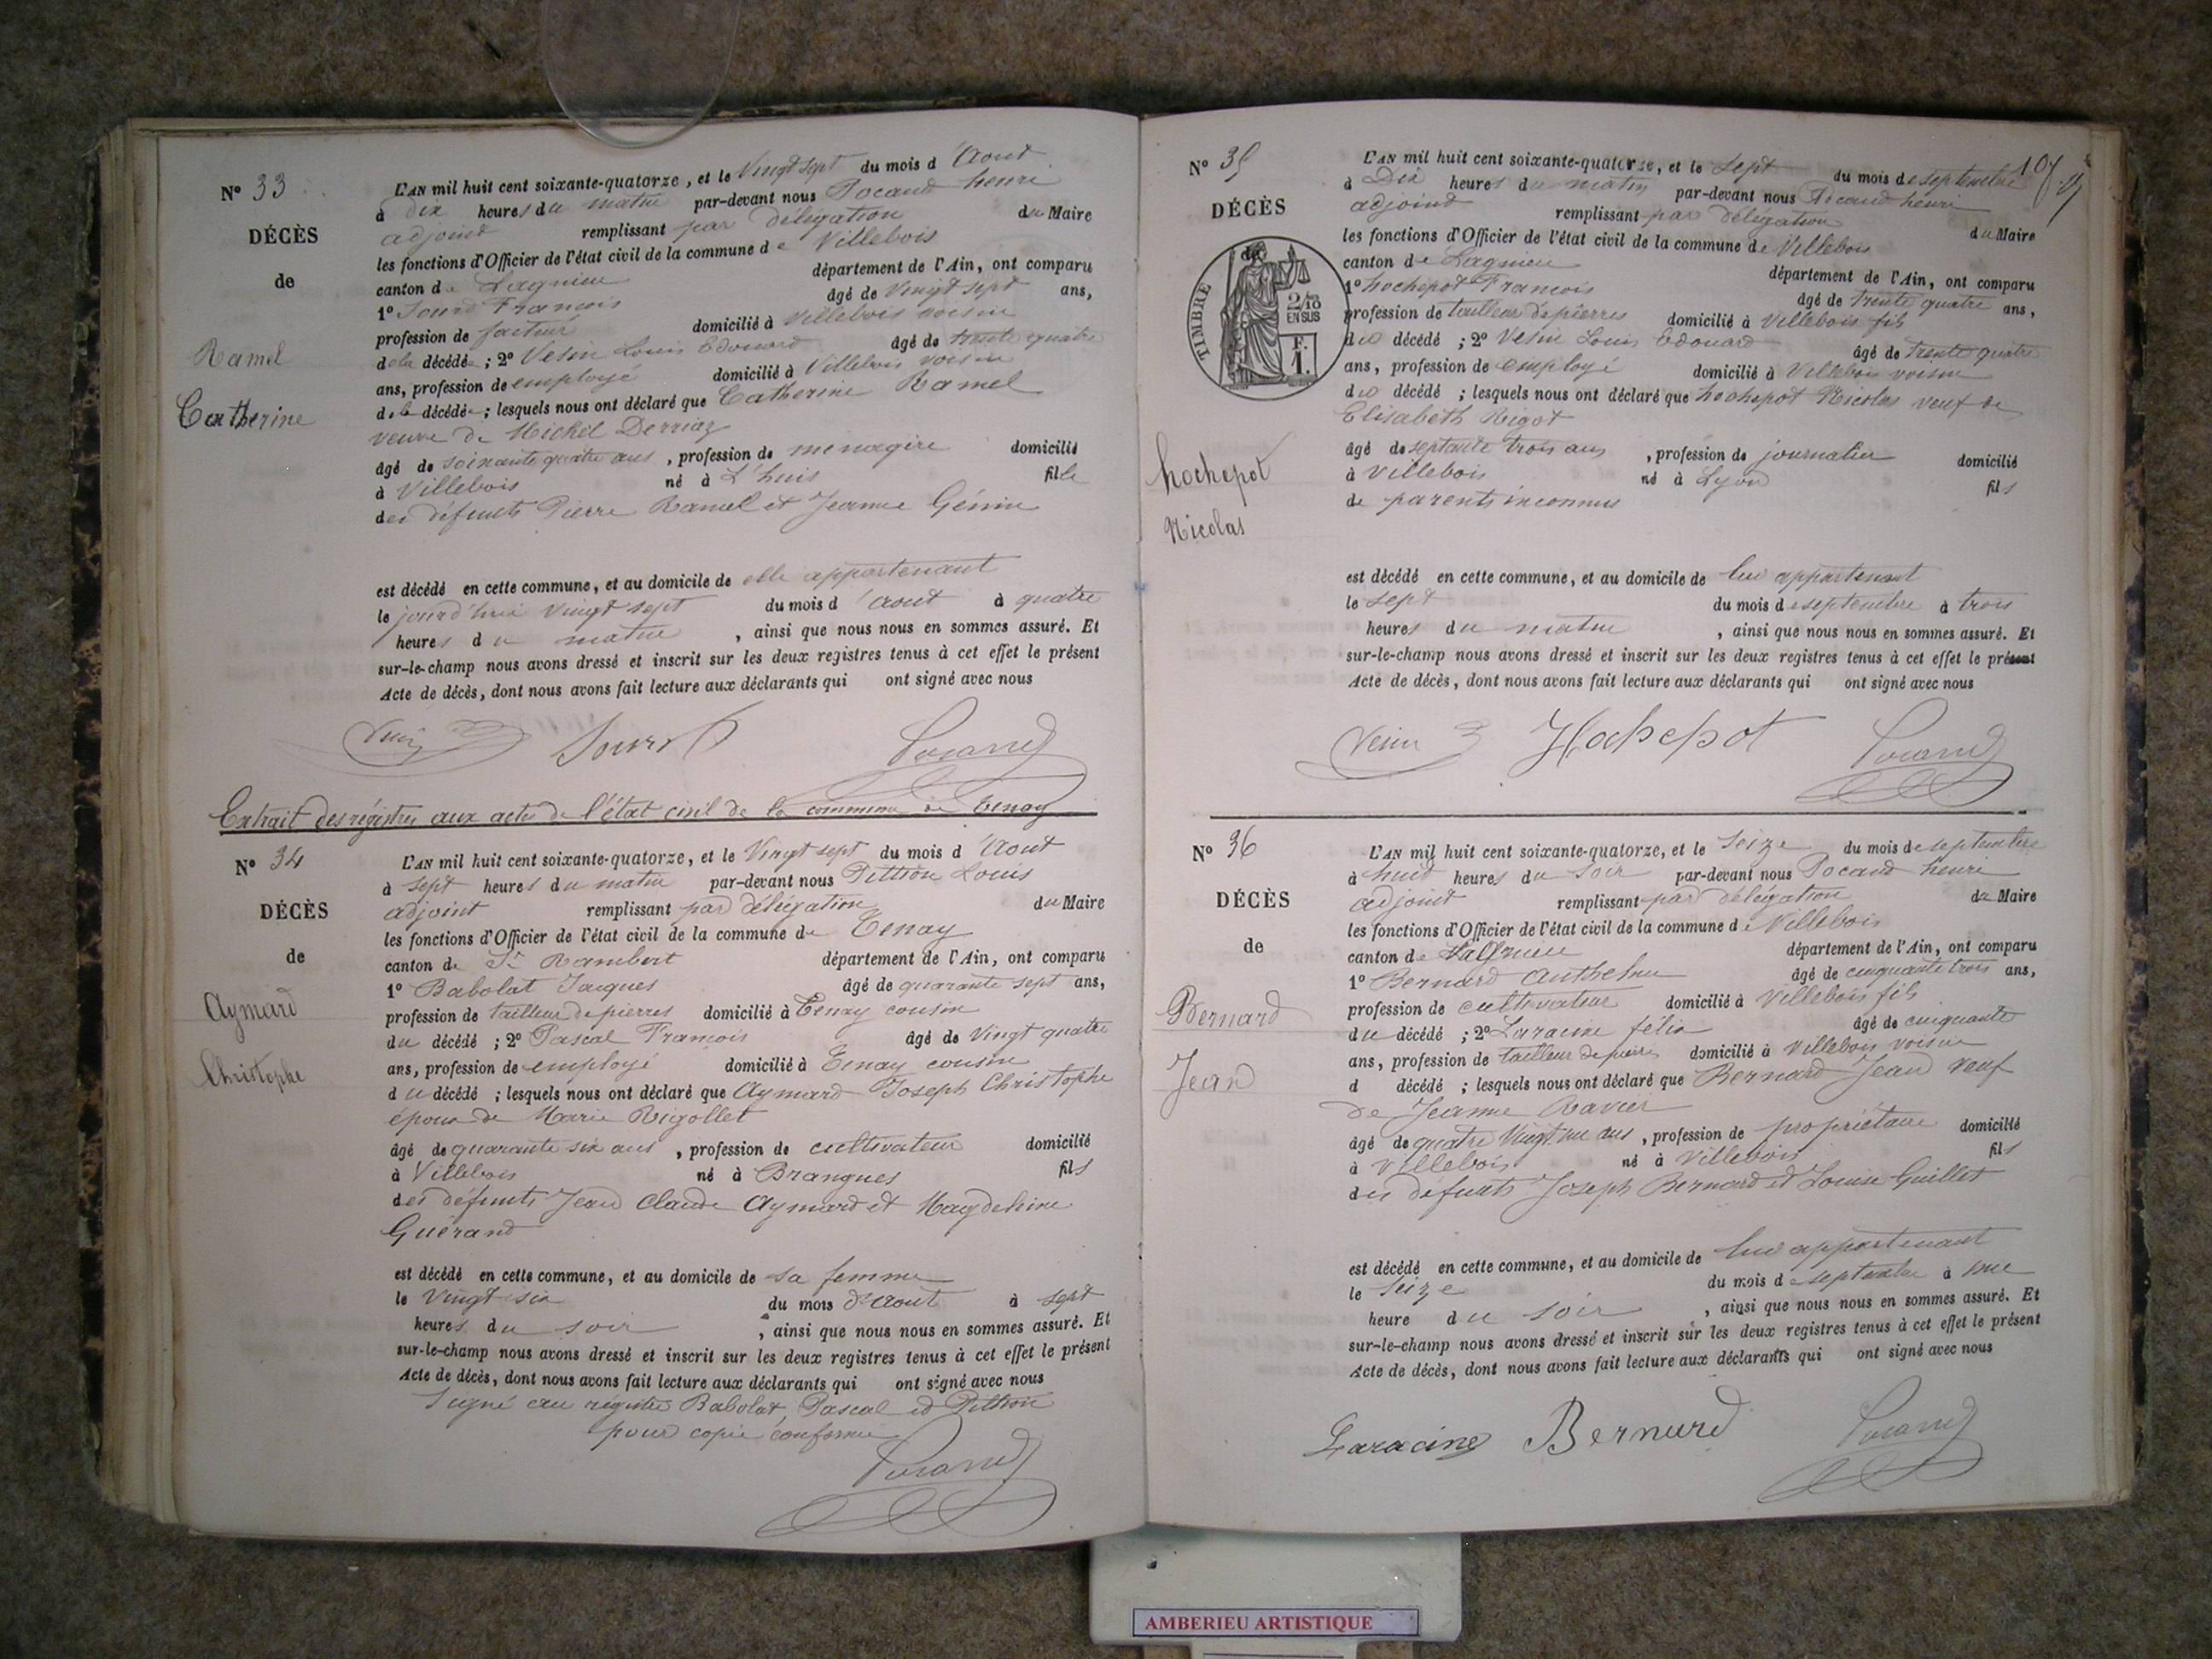 N° 33
DÉCÈS
de
Ramel
Catherine
L'AN mil huit cent soixante-quatorze, et le Vingt sept du mois d'Aout
à dix heures du matin par-devant nous Pocard henri
adjoint remplissant par délégation du Maire
les fonctions d'Officier de l'état civil de la commune de Villebois
canton de Lagnieu département de l'Ain, ont comparu
1° Sourd Francois âgé de Vingt sept ans,
profession de facteur domicilié à Villebois voisin
de la décédée ; 2° Vesin Louis Edouard âgé de trente quatre
ans, profession de employé domicilié à Villebois voisin
de la décédée ; lesquels nous ont déclaré que Catherine Ramel
veuve de Michel Derriaz
âgé de soixante quatre ans, profession de menagère domicilié
à Villebois né à L'huis fille
des défunts Pierre Ramel et Jeanne Génin
est décédé en cette commune, et au domicile de elle appartenant
le jourd'hui vingt sept du mois d'Aout à quatre
heures du matin, ainsi que nous nous en sommes assuré. Et
sur-le-champ nous avons dressé et inscrit sur les deux registres tenus à cet effet le présent
Acte de décès, dont nous avons fait lecture aux déclarants qui ont signé avec nous
Vesin Sourd Pocard
Extrait des régistres aux actes de l'état civil de la commune de Tenay
N° 34
DÉCÈS
de
Aymard
Christophe
L'AN mil huit cent soixante-quatorze, et le Vingt sept du mois d'Aout
à sept heures du matin par-devant nous Pittion Louis
adjoint remplissant par délégation du Maire
les fonctions d'Officier de l'état civil de la commune de Tenay
canton de St Rambert département de l'Ain, ont comparu
1° Babolat Jacques âgé de quarante sept ans,
profession de tailleur de pierres domicilié à Tenay cousin
du décédé ; 2° Pascal Francois âgé de Vingt quatre
ans, profession de employé domicilié à Tenay cousin
du décédé ; lesquels nous ont déclaré que Aymard Joseph Christophe
époux de Marie Rigollet
âgé de quarante six ans, profession de cultivateur domicilié
à Villebois né à Brangues fils
des défunts Jean Claude Aymard et Magdeleine
Guérand
est décédé en cette commune, et au domicile de sa femme
le Vingt six du mois d'Aout à sept
heures du soir, ainsi que nous nous en sommes assuré. Et
sur-le-champ nous avons dressé et inscrit sur les deux registres tenus à cet effet le présent
Acte de décès, dont nous avons fait lecture aux déclarants qui ont signé avec nous
Signé au régistre Babolat, Pascal et Pittion
pour copie conforme
Pocard
N° 35
DÉCÈS
de
TIMBRE
2/10
EN SUS
F.
1.
hochepot
Nicolas
L'AN mil huit cent soixante-quatorze, et le sept du mois de septembre
à Dix heures du matin par-devant nous Pocard henri
adjoint remplissant par délégation du Maire
les fonctions d'Officier de l'état civil de la commune de Villebois
canton de Lagnieu département de l'Ain, ont comparu
1° hochepot Francois âgé de trente quatre ans,
profession de tailleur de pierres domicilié à Villebois fils
du décédé ; 2° Vesin Louis Edouard âgé de trente quatre
ans, profession de employé domicilié à Villebois voisin
du décédé ; lesquels nous ont déclaré que hochepot Nicolas veuf de
Elisabeth Rigot
âgé de septante trois ans, profession de journalier domicilié
à Villebois né à Lyon fils
de parents inconnus
est décédé en cette commune, et au domicile de lui appartenant
le sept du mois de septembre à trois
heures du matin, ainsi que nous nous en sommes assuré. Et
sur-le-champ nous avons dressé et inscrit sur les deux registres tenus à cet effet le présent
Acte de décès, dont nous avons fait lecture aux déclarants qui ont signé avec nous
Vesin Hochepot Pocard
N° 36
DÉCÈS
de
Bernard
Jean
L'AN mil huit cent soixante-quatorze, et le Seize du mois de septembre
à huit heures du soir par-devant nous Pocard henri
adjoint remplissant par délégation du Maire
les fonctions d'Officier de l'état civil de la commune de Villebois
canton de Lagnieu département de l'Ain, ont comparu
1° Bernard Anthelme âgé de cinquante trois ans,
profession de cultivateur domicilié à Villebois fils
du décédé ; 2° Laracine félix âgé de cinquante
ans, profession de tailleur de pierres domicilié à Villebois voisin
d décédé ; lesquels nous ont déclaré que Bernard Jean veuf
de Jeanne Ravier
âgé de quatre Vingt un ans, profession de propriétaire domicilié
à Villebois né à Villebois fils
des défunts Joseph Bernard et Louise Guillet
est décédé en cette commune, et au domicile de lui appartenant
le Seize du mois de septembre à une
heure du soir, ainsi que nous nous en sommes assuré. Et
sur-le-champ nous avons dressé et inscrit sur les deux registres tenus à cet effet le présent
Acte de décès, dont nous avons fait lecture aux déclarants qui ont signé avec nous
Laracine Bernard Pocard
AMBERIEU ARTISTIQUE